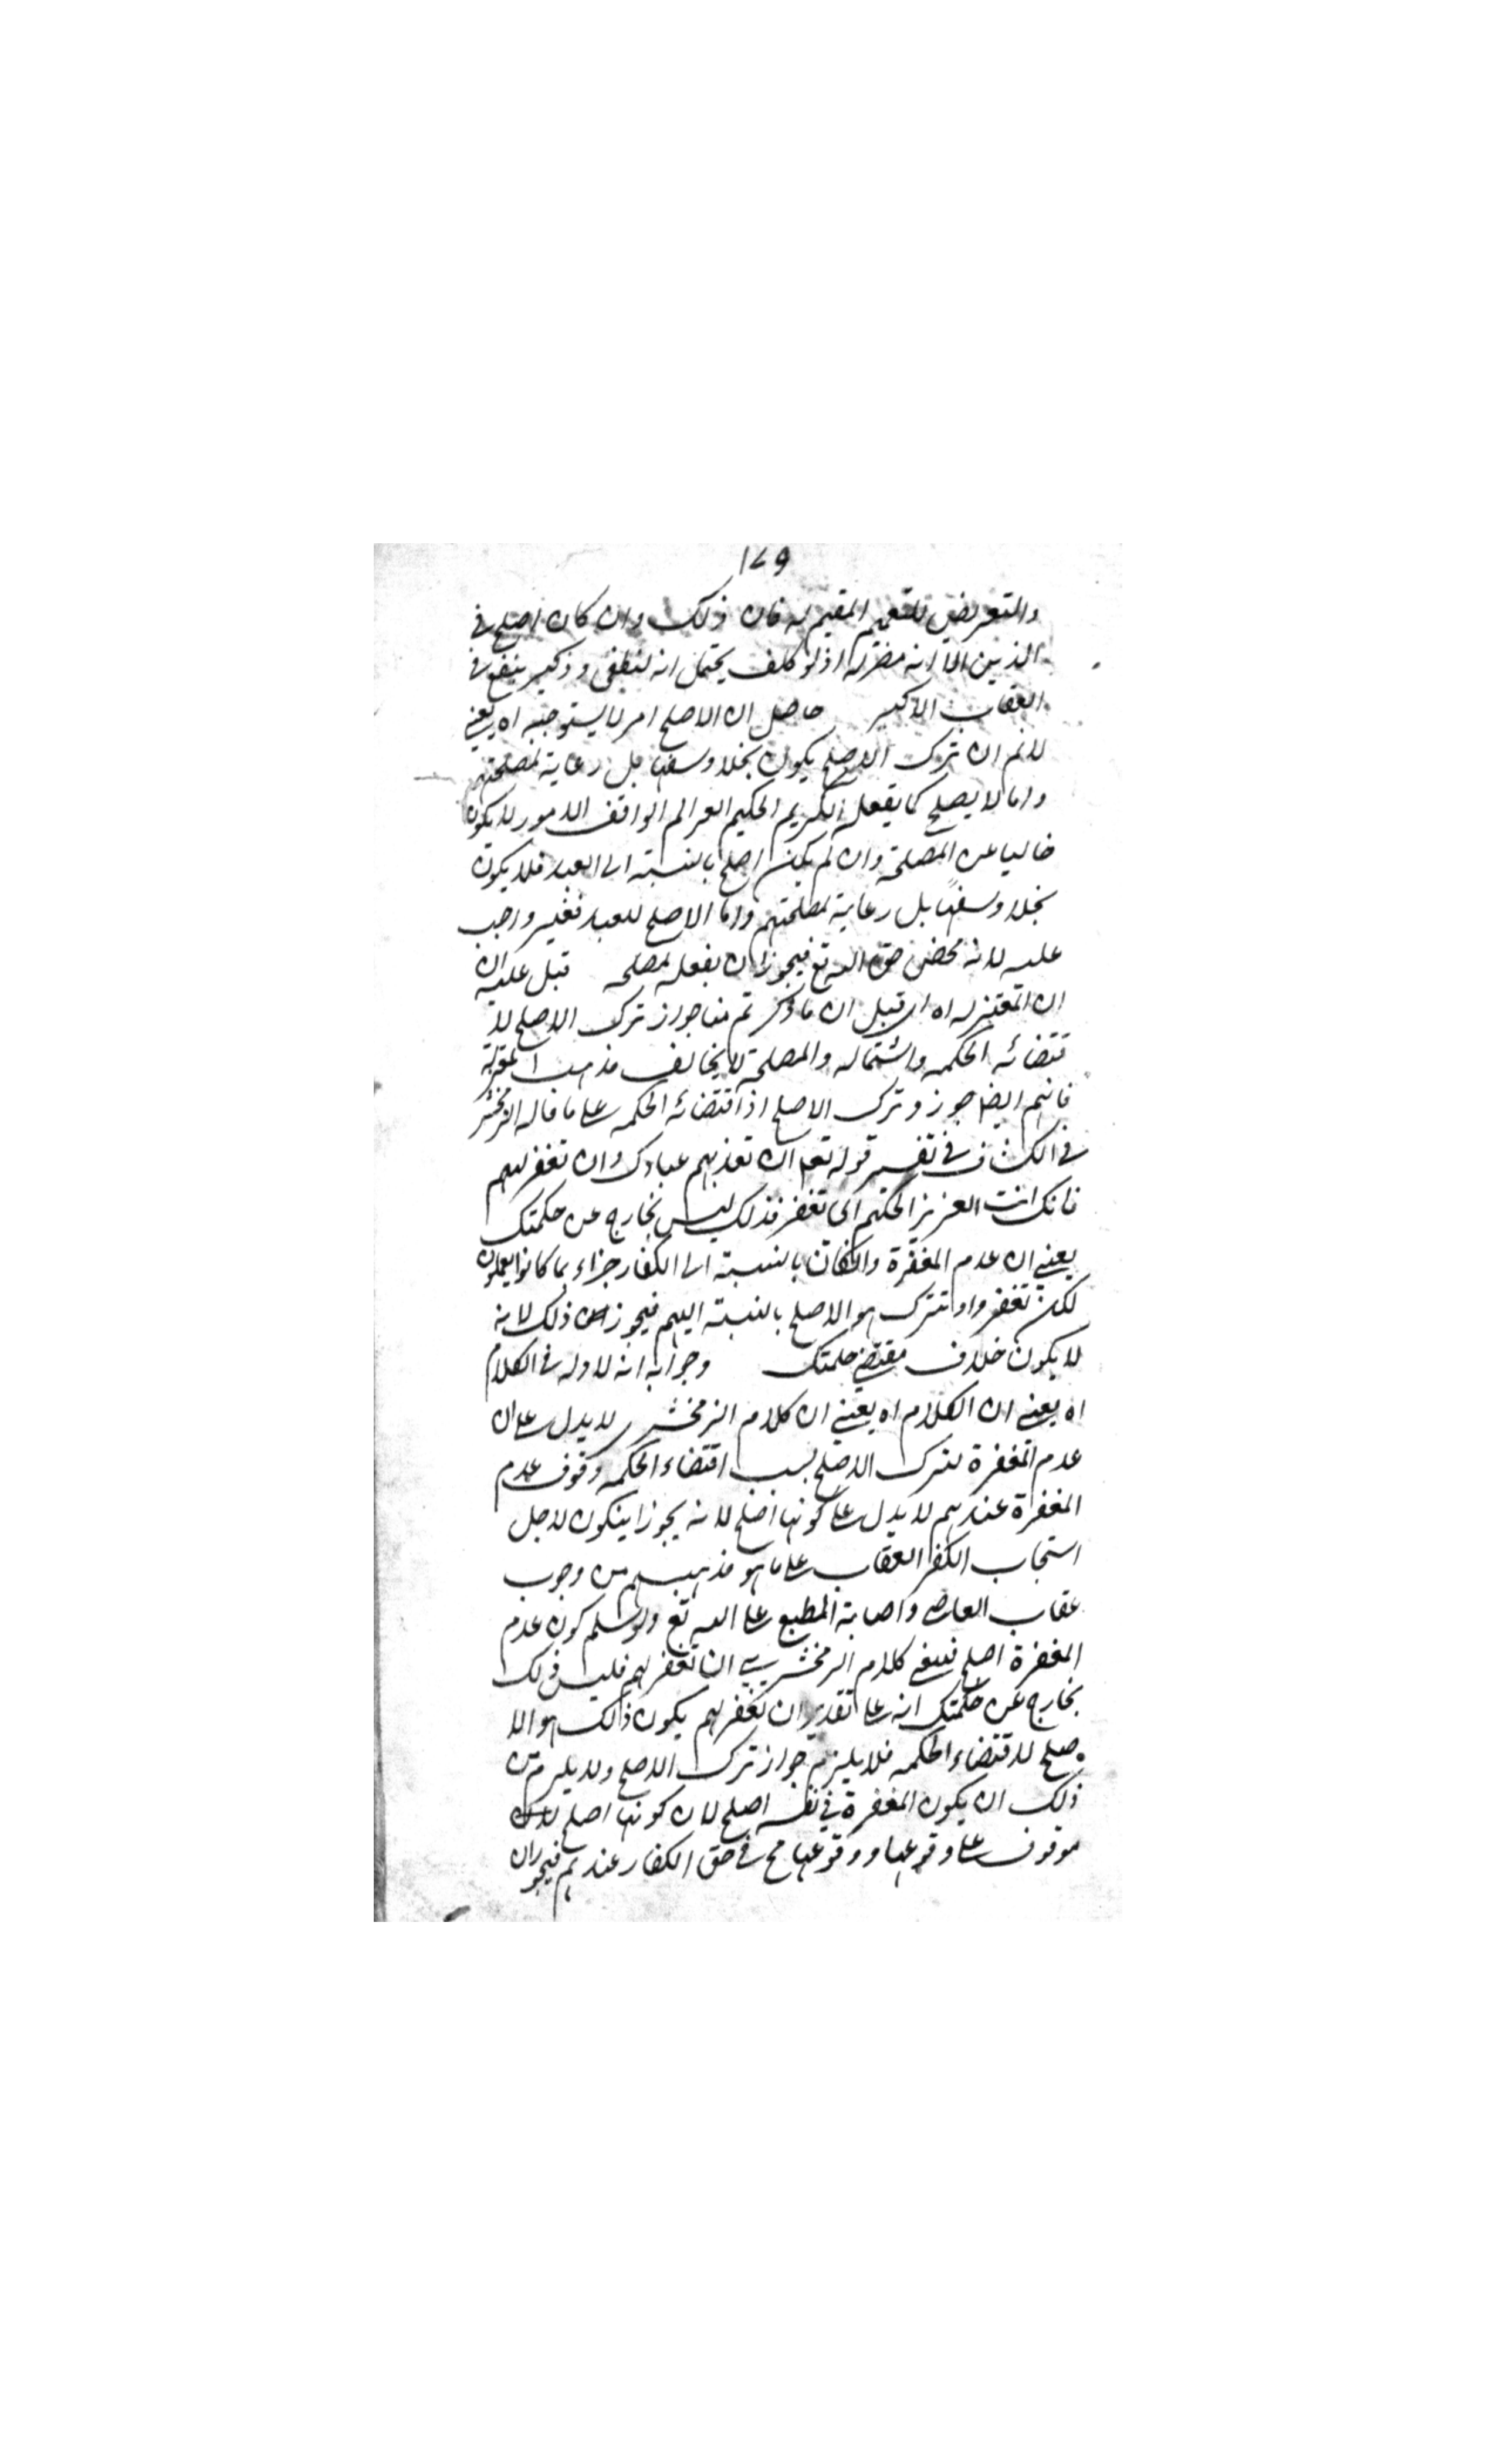 ١٧٩
والتعريض للنعيم المقيم له فان ذلك وان كان اصلح في
الدين الا انه مضر له اذ لو كلف يحتمل انه يطغى و ذكير ينفع في
العقاب الاكبر حاصل ان الاصلح امر لا يستوجبه اه يعني
لانم ان ترك الاصلح يكون بخلا وسفها بل رعاية لمصلحتهم
واما لا يصلح كما يفعل الكريم الحكيم العالم الواقف الامور لا يكون
خاليا عن المصلحة وان لم يكن اصلح بالنسبة الى العبد فلا يكون
بخلا وسفها بل رعاية لمصلحتهم واما الاصلح للعبد فغير واجب
عليه لانه محض حق الله تع فيجوز ان يفعله لمصلحه قيل عليه ان
ان المعتزله اه اى قيل ان ما ذكر تم منا جواز ترك الاصلح لا
قتضائه الحكمه واشتماله والمصلحة لا يخالف مذهب المعتزلة
فانهم ايضا جوزوا ترك الاصلح اذا اقتضائه الحكمه على ما قاله الزمخشر
في الكشاف في تفسير قوله تعا ان تعذبهم عبادك وان تغفر لهم
فانك انت العزيز الحكيم اى تغفر فذلك ليس بخارج عن حكمتك
يعني ان عدم المغفرة والكفان بالنسبة الى الكفار جزاء بما كانوا يعملون
لكن تغفر واو تترك هو الاصلح بالنسبة اليهم فيجوز ذلك لانه
لا يكون خلاف مقتضى حكمتك وجوابه انه لا وله في الكلام
اه يعني ان الكلام اه يعني ان كلام الزمخشر لا يدل على ان
عدم المغفرة لترك الاصلح بسبب اقتضاء الحكمه وقوف عدم
المغفرة عندهم لا يدل على كونها اصلح لانه يجوز اينكون لاجل
استجاب الكفر العقاب على ما هو مذهبهم من وجوب
عقاب العاصى واصابة المطيع على الله تع ولو سلم كون عدم
المغفرة اصلح فمعنى كلام الزمخشري ان تغفر لهم فليس ذلك
بخارج عن حكمتك انه على تقدير ان تغفر لهم يكون ذالك هو الا
صلح لاقتضاء الحكمه فلا يلزم جواز ترك الاصلح ولا يلزم من
ذلك ان يكون المغفرة في نفسه اصلح لان كونها اصلح
موقوف على وقوعها ووقوعها مح في حق الكفار عندهم فيجوز ان